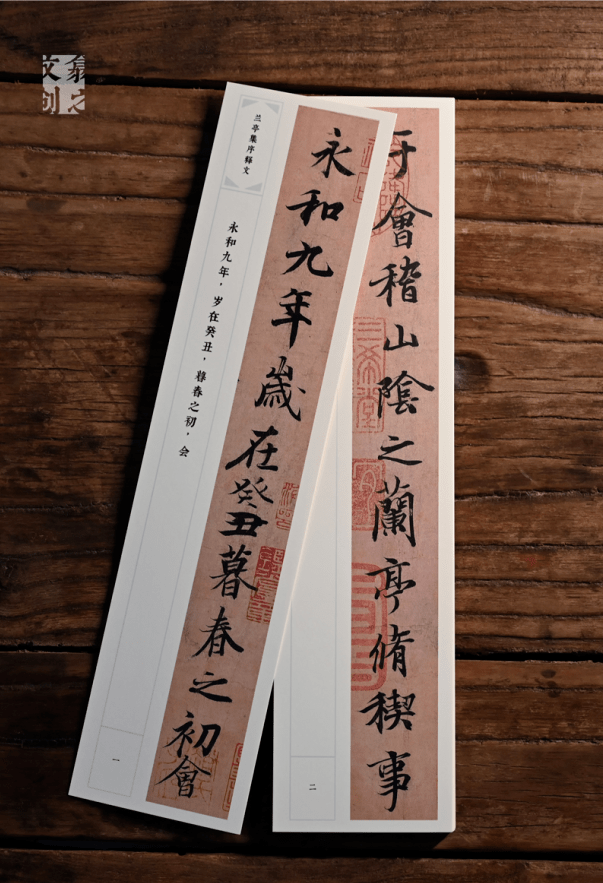 兰亭集序释文
永和九年,岁在癸丑,暮春之初,会
永和九年歲在癸丑暮春之初會
一
于會稽山陰之蘭亭脩稧事
二